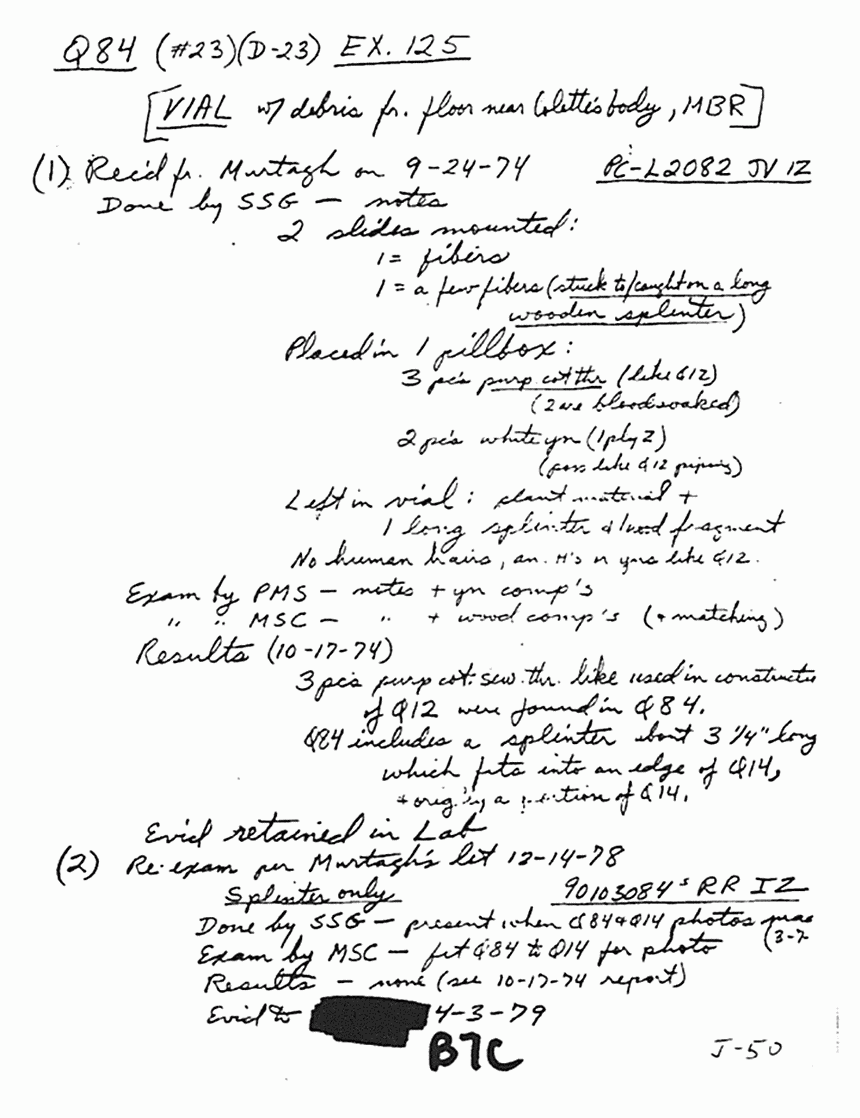 Q84 (#23)(D-23) EX. 125
[VIAL w/ debris fr. floor near Colette's body, MBR]
(1) Rec'd fr. Murtagh on 9-24-74 PC-L2082 JV IZ
Done by SSG — notes
2 slides mounted:
1 = fibers
1 = a few fibers (stuck to/caught on a long
wooden splinter)
Placed in 1 pillbox:
3 pc's purp cot thr (like Q12)
(2 are bloodsoaked)
2 pc's white yn (1 ply Z)
(poss like Q12 piping)
Left in vial: plant material +
1 long splinter wood fragment
No human hairs, an. H's or yns like Q12.
Exam by PMS — notes + yn comp's
" " MSC — " + wood comp's (+ matching)
Results (10-17-74)
3 pcs purp cot. sew. thr. like used in constructn
of Q12 were found in Q84.
Q84 includes a splinter about 3 1/4" long
which fits into an edge of Q14,
+ orig'ly a portion of Q14.
Evid retained in Lab
(2) Re-exam per Murtagh's let 12-14-78
Splinter only 90103084 S RR IZ
Done by SSG — present when Q84+Q14 photos
Exam by MSC — fit Q84 to Q14 for photo (3-7
Results — none (see 10-17-74 report)
Evid to 4-3-79
B7C
J-50